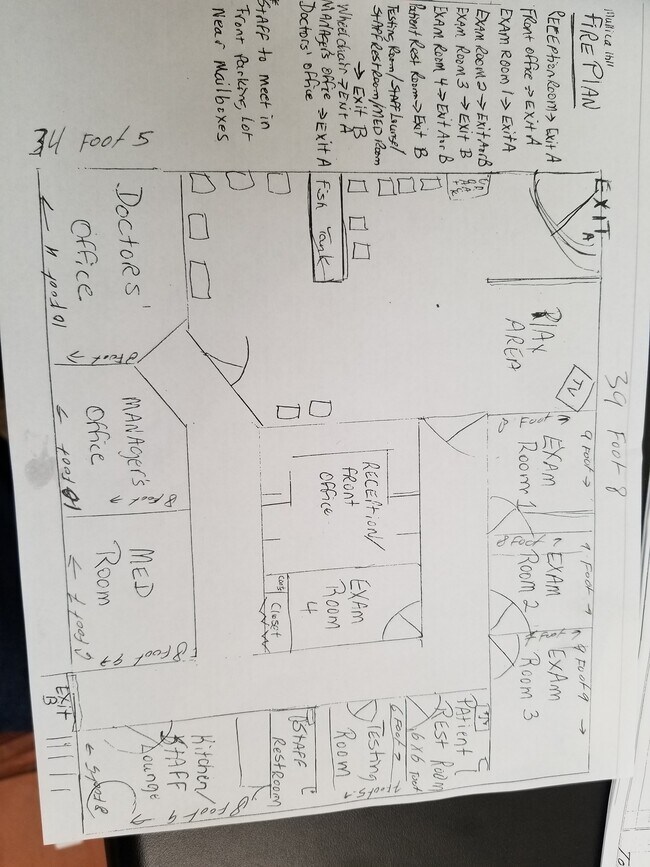 Mullica Hill
FIRE PLAN
RECEPTION ROOM → EXIT A
FRONT OFFICE → EXIT A
EXAM ROOM 1 → EXIT A
EXAM ROOM 2 → EXIT A or B
EXAM ROOM 3 → EXIT B
EXAM ROOM 4 → EXIT A or B
Patient Rest Room → EXIT B
Testing Room/STAFF Lounge/
STAFF RESTROOM/MED Room
→ EXIT B
Wheelchair → EXIT A
MANAGER'S OFFICE → EXIT A
Doctors' Office
STAFF to meet in
Front Parking Lot
Near Mailboxes
34 FOOT 5
39 FOOT 8
EXIT
A
Fish Tank
DOCTORS'
OFFICE
10 foot 4
8 foot
PLAY
AREA
TV
MANAGER'S
OFFICE
10 foot
8 foot
RECEPTION/
FRONT
OFFICE
EXAM
Room 1
8 Foot
9 Foot
MED
Room
8 foot 9
EXAM
ROOM
4
Closet
EXAM
Room 2
8 Foot
9 Foot
EXAM
Room 3
9 Foot 9
EXIT
B
Kitchen/
STAFF
Lounge
8 Foot 9
STAFF
RESTROOM
Testing
Room
6 Foot
Patient
REST ROOM
6x6 Foot
To